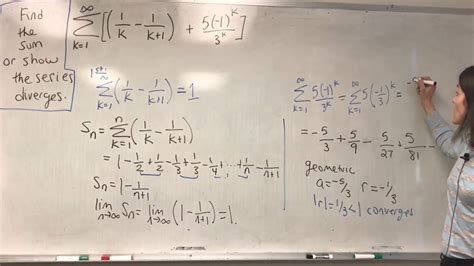 Find
the
sum
or show
the series
diverges.
∞
∑ [(1/k - 1/(k+1)) + 5(-1)^k/3^k]
k=1
1st: ∞
∑ (1/k - 1/(k+1)) = 1
k=1
S_n = n∑k=1 (1/k - 1/(k+1))
= 1 - 1/2 + 1/2 - 1/3 + 1/3 - 1/4 + ... + 1/n - 1/(n+1)
S_n = 1 - 1/(n+1)
lim n→∞ S_n = lim n→∞ (1 - 1/(n+1)) = 1.
∞∑k=1 5(-1)^k/3^k = ∞∑k=1 5(-1/3)^k =
= -5/3 + 5/9 - 5/27 + 5/81 -
geometric
a = -5/3 r = -1/3
|r| = 1/3 < 1 converges